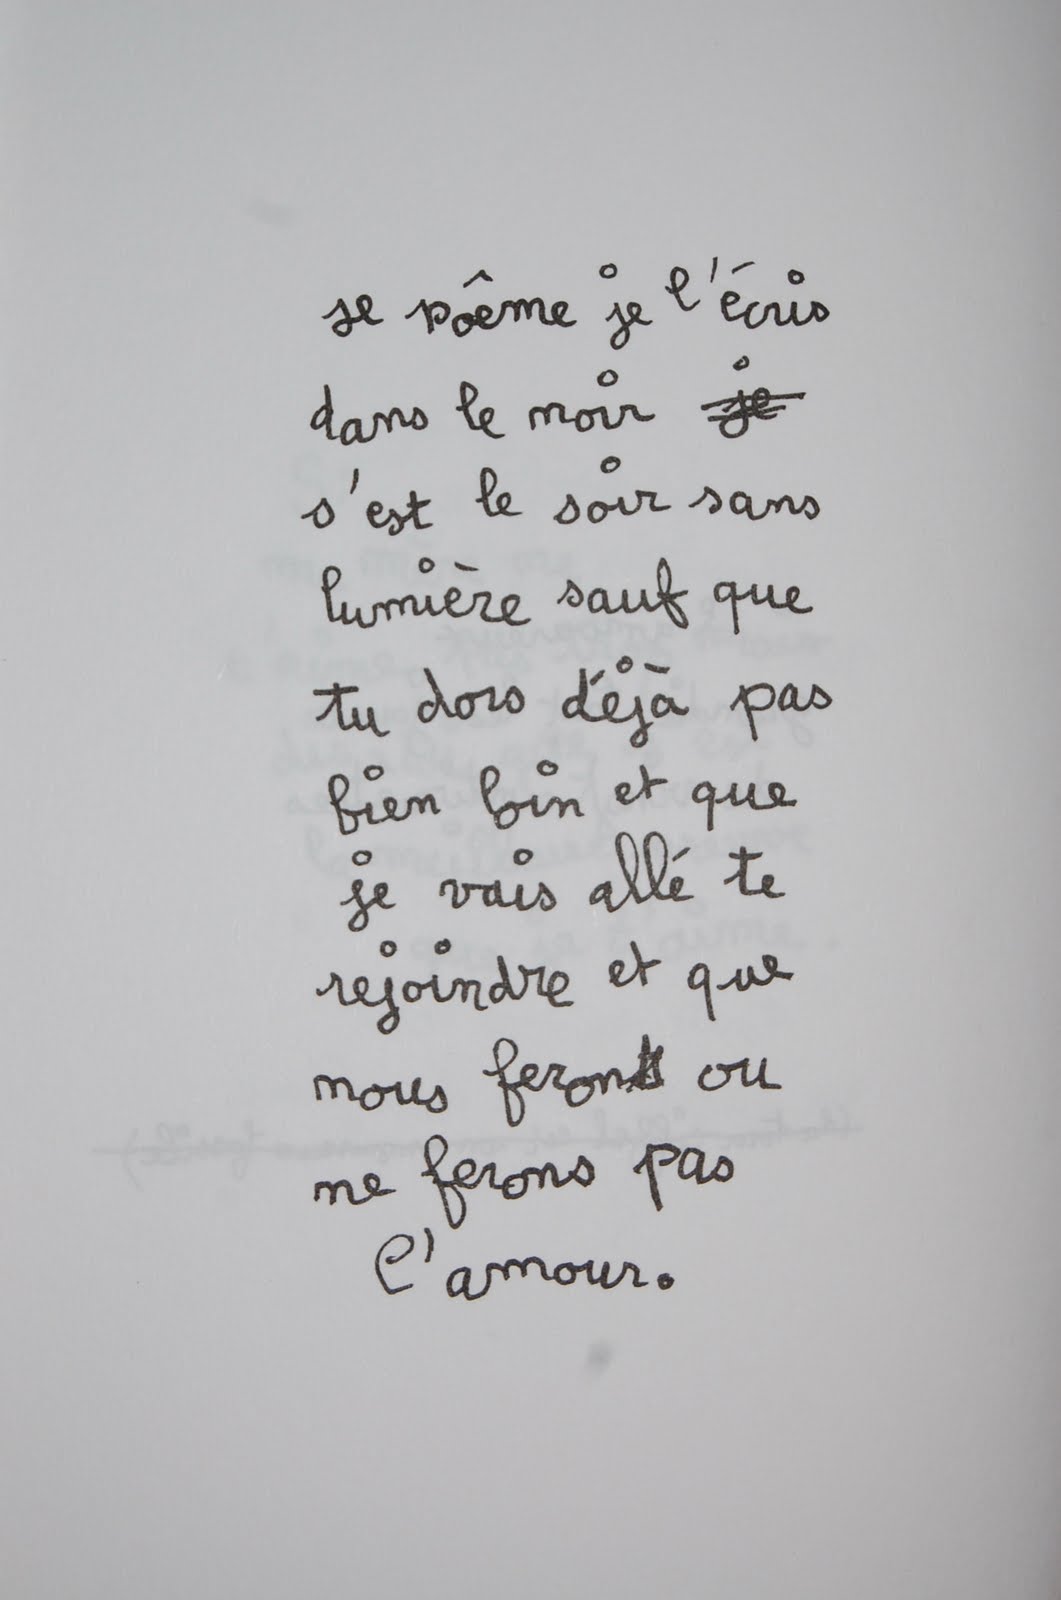 se poême je l'écris
dans le noir je
s'est le soir sans
lumière sauf que
tu dors déjà pas
bien loin et que
je vais allé te
rejoindre et que
nous ferons ou
ne ferons pas
l'amour.